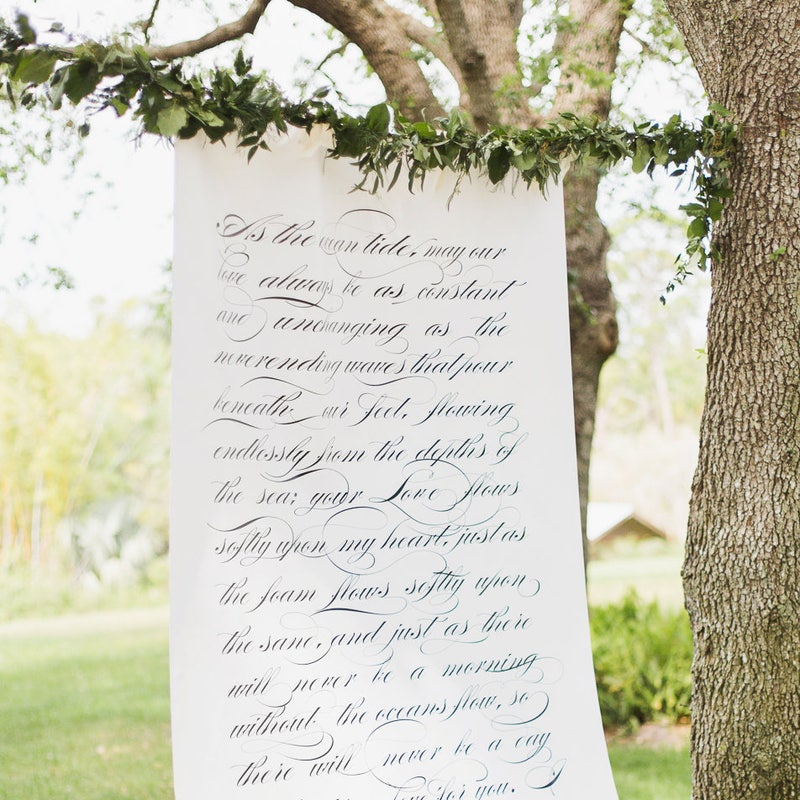 As the ocean tide, may our
love always be as constant
and unchanging as the
neverending waves that pour
beneath our feet, flowing
endlessly from the depths of
the sea; your Love flows
softly upon my heart, just as
the foam flows softly upon
the sand, and just as there
will never be a morning
without the oceans flow, so
there will never be a day
love for you.